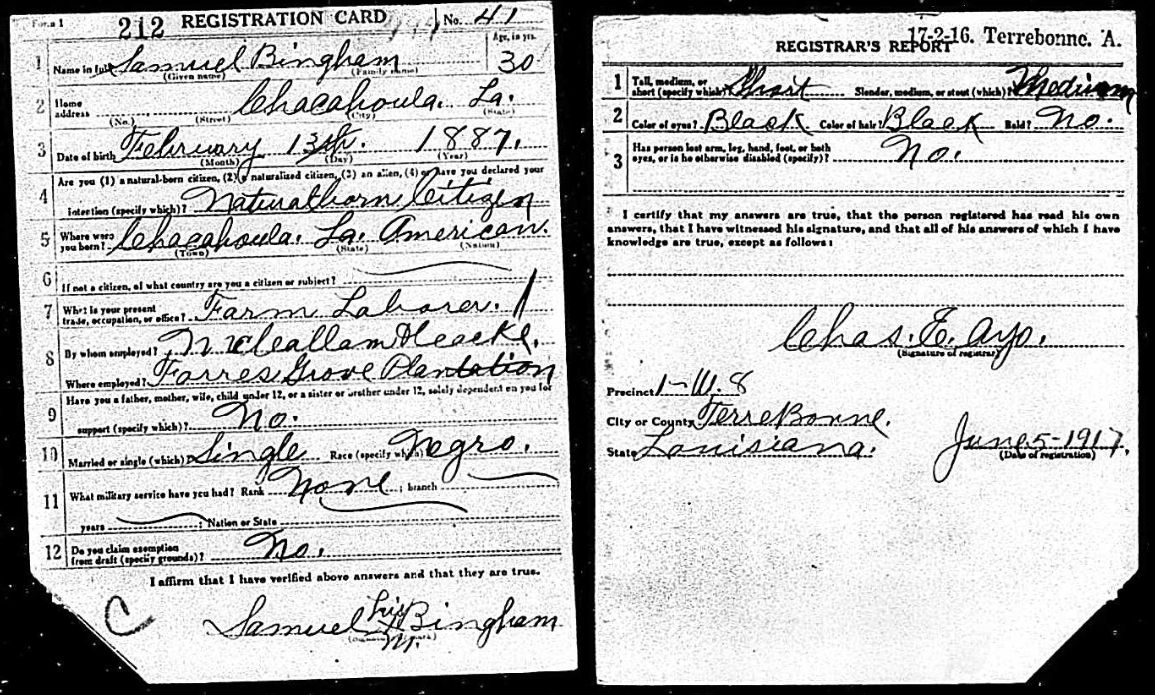 Form 1
212 REGISTRATION CARD No. 41
1 Name in full Samuel Bingham Age, in yrs. 30
(Given name) (Family name)
2 Home address Chacahoula. La.
(No.) (Street) (City) (State)
3 Date of birth February 13th. 1887.
(Month) (Day) (Year)
4 Are you (1) a natural-born citizen, (2) a naturalized citizen, (3) an alien, (4) or have you declared your
intention (specify which)? Natural born Citizen
5 Where were you born? Chacahoula. La. American.
(Town) (State) (Nation)
6 If not a citizen, of what country are you a citizen or subject?
7 What is your present trade, occupation, or office? Farm Laborer.
8 By whom employed?
Where employed? Forres Grove Plantation
9 Have you a father, mother, wife, child under 12, or a sister or brother under 12, solely dependent on you for
support (specify which)? No.
10 Married or single (which)? Single Race (specify which)? Negro.
11 What military service have you had? Rank None ; branch
years ; Nation or State
12 Do you claim exemption from draft (specify grounds)? No.
I affirm that I have verified above answers and that they are true.
C
his
Samuel X Bingham
(Signature or mark)
M.
17-2-16. Terrebonne. A.
REGISTRAR'S REPORT
1 Tall, medium, or short (specify which)? Short Slender, medium, or stout (which)? Medium
2 Color of eyes? Black Color of hair? Black Bald? No.
3 Has person lost arm, leg, hand, foot, or both
eyes, or is he otherwise disabled (specify)? No.
I certify that my answers are true, that the person registered has read his own
answers, that I have witnessed his signature, and that all of his answers of which I have
knowledge are true, except as follows:
Chas. E. Ayo.
(Signature of registrar)
Precinct 1-W. 8
City or County TerreBonne.
State Louisiana. June. 5-1917.
(Date of registration)